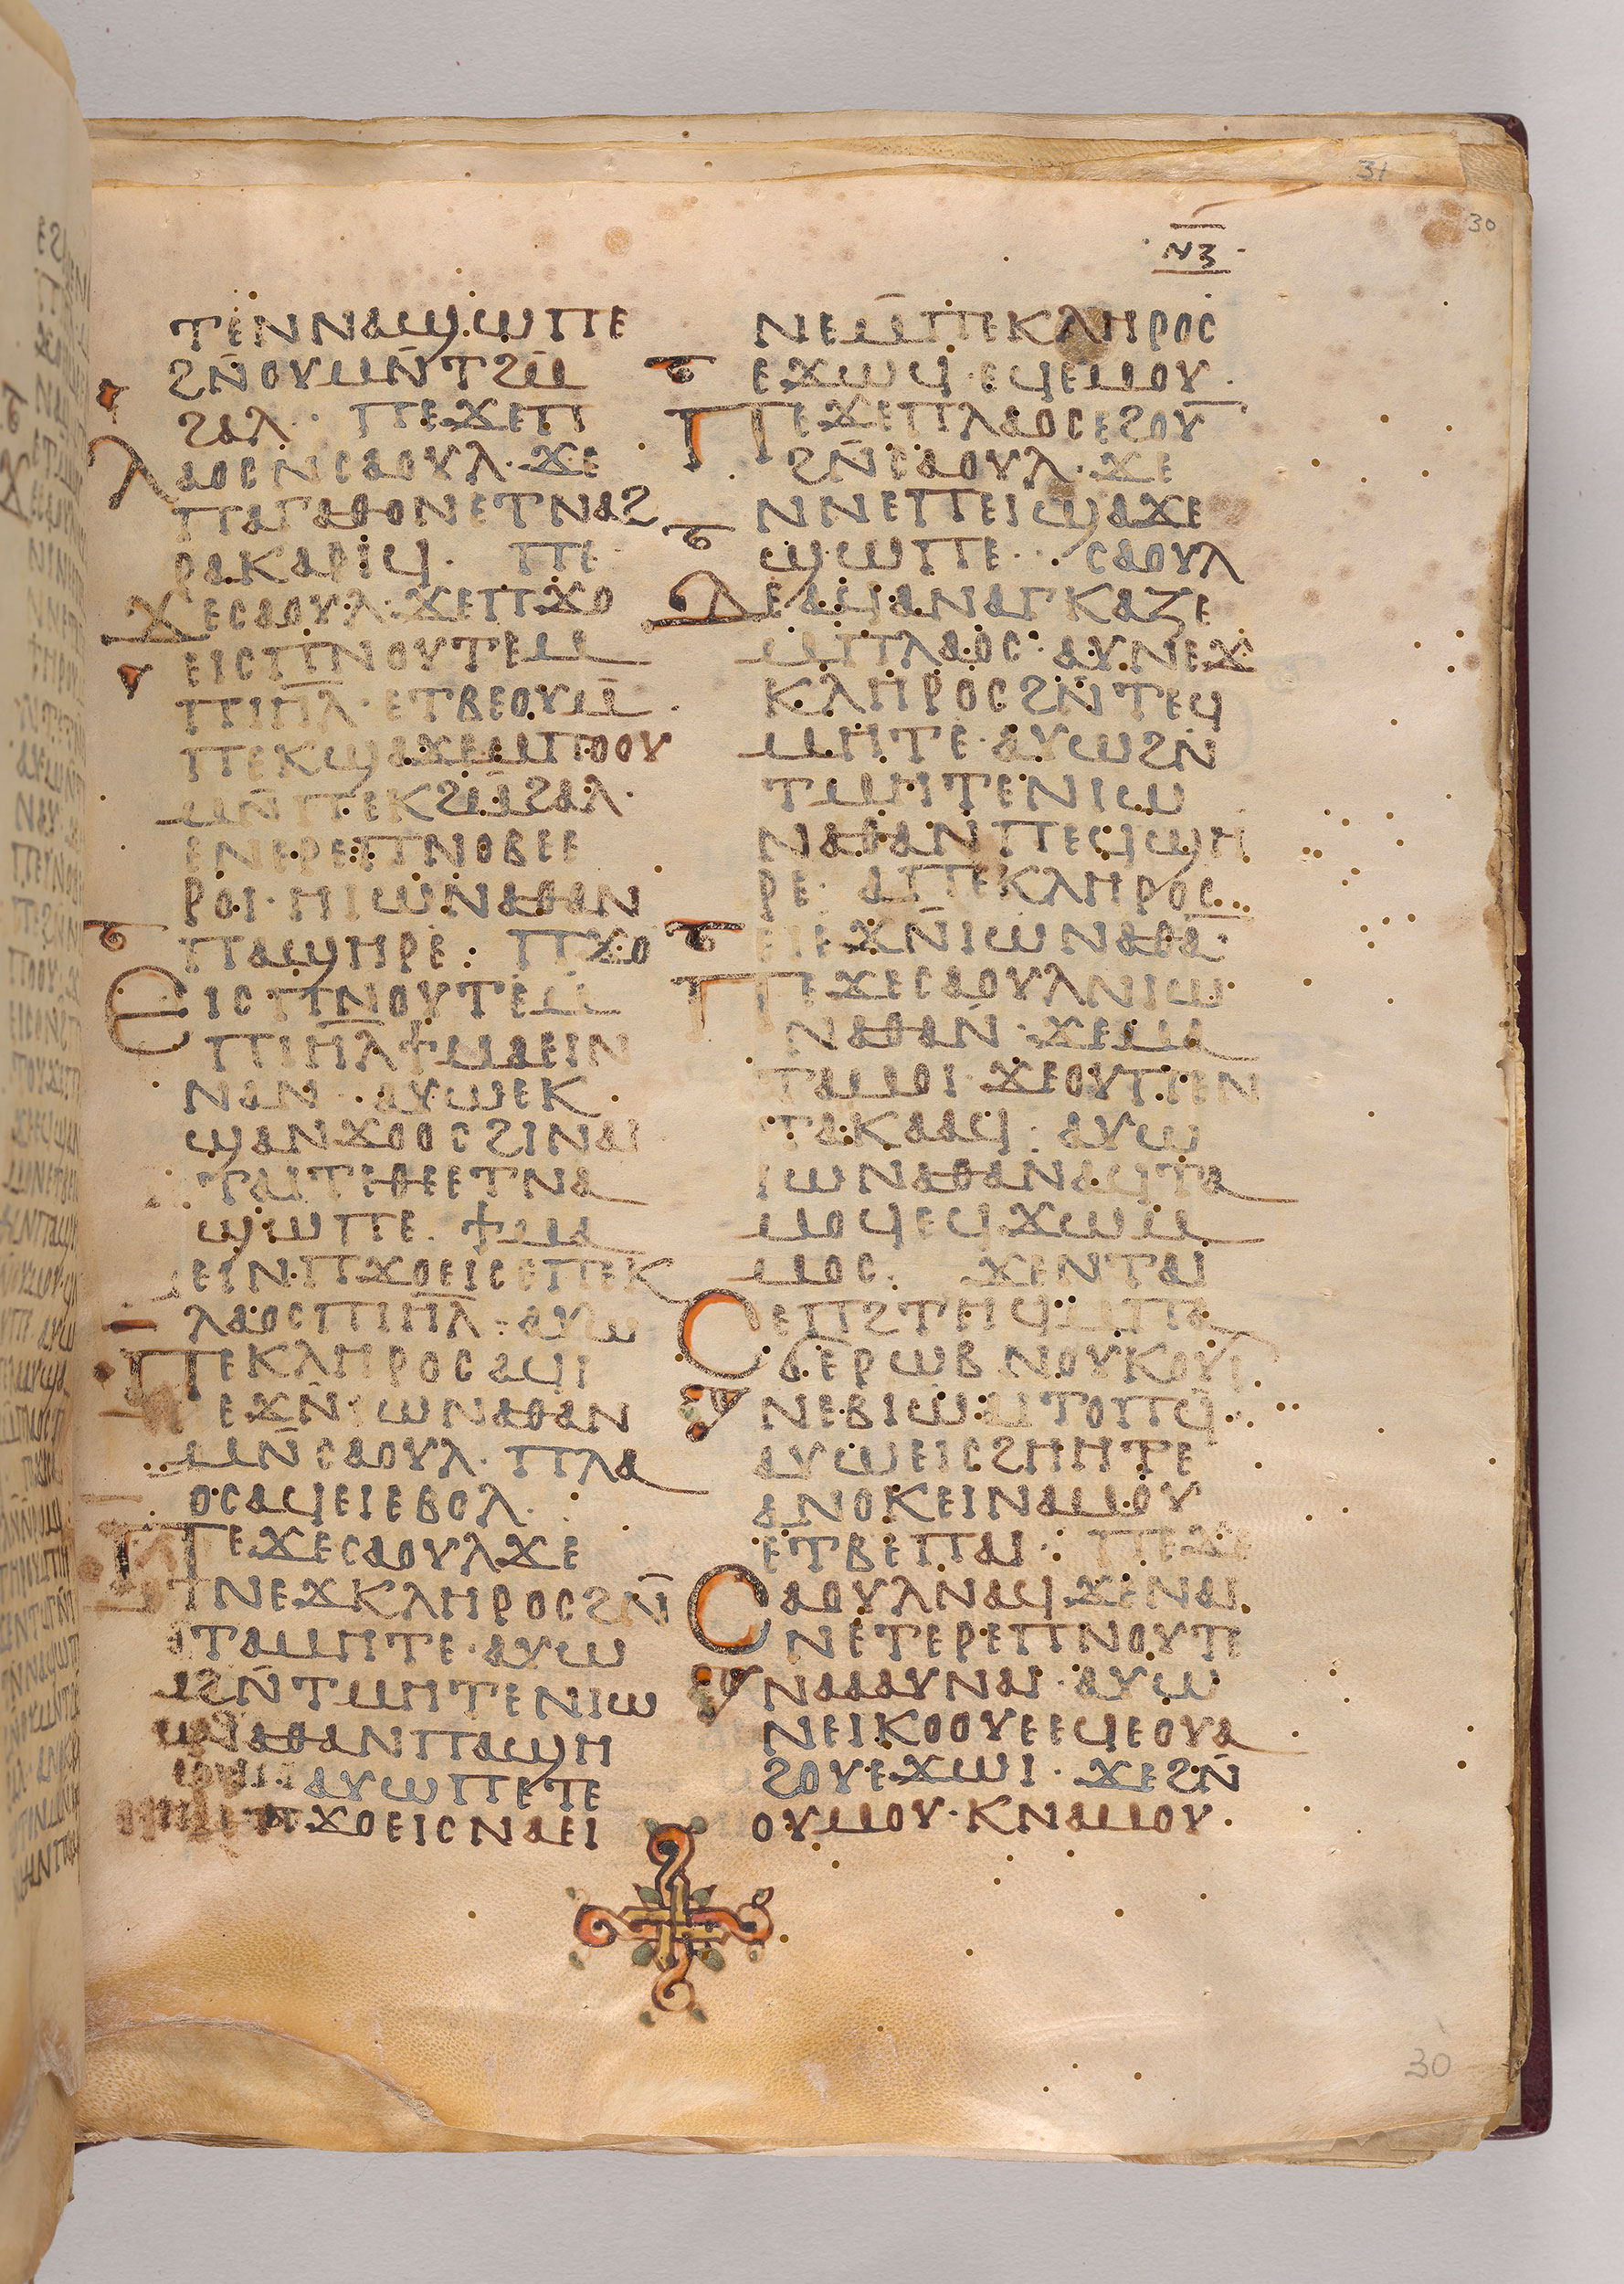 31
30
ⲛⲍ
ⲧⲉⲛⲛⲁϣⲱⲡⲉ
ϩⲛ̄ⲟⲩⲙⲛ̄ⲧϩⲙ̄
ϩⲁⲗ· ⲡⲉϫⲉⲡ
ⲗⲁⲟⲥⲛⲥⲁⲟⲩⲗ· ϫⲉ
ⲡⲁⲅⲁⲑⲟⲛⲉⲧⲛⲁϩ
ⲣⲁⲕⲁⲣⲓϥ· ⲡⲉ
ϫⲉⲥⲁⲟⲩⲗ·ϫⲉⲡϫⲟ
ⲉⲓⲥⲡⲛⲟⲩⲧⲉⲙ
ⲡⲓⲏ̄ⲗ̄· ⲉⲧⲃⲉⲟⲩⲙ̄
ⲡⲉⲕϣⲁϫⲉⲙⲡⲟⲟⲩ
ⲙⲛ̄ⲡⲉⲕϩⲙ̄ϩⲁⲗ·
ⲉⲛⲉⲣⲉⲡⲛⲟⲃⲉⲉ
ⲣⲟⲓ· ⲏⲓⲱⲛⲁⲑⲁⲛ
ⲡⲁϣⲏⲣⲉ: ⲡϫⲟ
ⲉⲓⲥⲡⲛⲟⲩⲧⲉⲙ
ⲡⲓⲏ̄ⲗ̄ϯⲙⲁⲉⲓⲛ
ⲛⲁⲛ· ⲁⲩⲱⲉⲕ
ϣⲁⲛϫⲟⲟⲥϩⲓⲛⲁⲓ
ⲧⲁⲓⲧⲉⲑⲉⲉⲧⲛⲁ
ϣⲱⲡⲉ. ϯⲙⲁ
ⲉⲓⲛ·ⲡϫⲟⲉⲓⲥⲉⲡⲉⲕ
ⲗⲁⲟⲥⲡⲓⲏ̄ⲗ̄: ⲁⲩⲱ
ⲡⲉⲕⲗⲏⲣⲟⲥⲁϥⲓ
ⲉϫⲛ̄ⲓⲱⲛⲁⲑⲁⲛ
ⲙⲛ̄ⲥⲁⲟⲩⲗ· ⲡⲗⲁ
ⲟⲥⲁϥⲉⲓⲉⲃⲟⲗ·
ⲡⲉϫⲉⲥⲁⲟⲩⲗϫⲉ
ⲛⲉϫⲕⲗⲏⲣⲟⲥϩⲛ̄
ⲧⲁⲙⲏⲧⲉ·ⲁⲩⲱ
ϩⲛ̄ⲧⲙⲏⲧⲉⲛⲓⲱ
ⲛⲁⲑⲁⲛⲡⲁϣⲏ
ⲁⲩⲱⲡⲉⲧⲉ
ⲡϫⲟⲉⲓⲥⲛⲁⲉⲓ
ⲛⲉⲙ̄ⲡⲉⲕⲗⲏⲣⲟⲥ
ⲉϫⲱϥ·ⲉϥⲉⲙⲟⲩ·
ⲡⲉϫⲉⲡⲗⲁⲟⲥⲉϩⲟⲩ
ϩⲛ̄ⲥⲁⲟⲩⲗ·ϫⲉ
ⲛⲛⲉⲡⲉⲓϣⲁϫⲉ
ϣⲱⲡⲉ· ⲥⲁⲟⲩⲗ
ⲇⲉⲁϥⲁⲛⲁⲅⲕⲁⲍⲉ
ⲙⲡⲗⲁⲟⲥ·ⲁⲩⲛⲉϫ
ⲕⲗⲏⲣⲟⲥϩⲛ̄ⲧⲉϥ
ⲙⲏⲧⲉ·ⲁⲩⲱϩⲛ̄
ⲧⲙⲏⲧⲉⲛⲓⲱ
ⲛⲁⲑⲁⲛⲡⲉϥϣⲏ
ⲣⲉ· ⲁⲡⲉⲕⲗⲏⲣⲟⲥ
ⲉⲓⲉϫⲛ̄ⲓⲱⲛⲁⲑⲁ̄·
ⲡⲉϫⲉⲥⲁⲟⲩⲗⲛⲓⲱ
ⲛⲁⲑⲁⲛ· ϫⲉⲙⲁ
ⲧⲁⲙⲟⲓ·ϫⲉⲟⲩⲡⲉⲛ
ⲧⲁⲕⲁⲁϥ· ⲁⲩⲱ
ⲓⲱⲛⲁⲑⲁⲛⲁϥⲧⲁ
ⲙⲟϥⲉϥϫⲱⲙ
ⲙⲟⲥ· ϫⲉⲛⲧⲁⲓ
ϫⲉⲡϩⲧⲏϥⲙⲡⲁ
ϭⲉⲣⲱⲃⲛⲟⲩⲕⲟⲩⲓ
ⲛⲉⲃⲓⲱⲁⲓⲧⲟⲡϥ̄·
ⲁⲩⲱⲉⲓⲥϩⲏⲏⲧⲉ
ⲁⲛⲟⲕⲉⲓⲛⲁⲙⲟⲩ
ⲉⲧⲃⲉⲡⲁⲓ· ⲡⲉϫⲉ
ⲥⲁⲟⲩⲗⲛⲁϥ·ϫⲉⲛⲁⲓ
ⲛⲉⲧⲉⲣⲉⲡⲛⲟⲩⲧⲉ
ⲛⲁⲁⲁⲩⲛⲁⲓ·ⲁⲩⲱ
ⲛⲉⲓⲕⲟⲟⲩⲉⲉϥⲉⲟⲩⲁ
ϩⲟⲩⲉϫⲱⲓ· ϫⲉϩⲛ̄
ⲟⲩⲙⲟⲩ·ⲕⲛⲁⲙⲟⲩ·
30